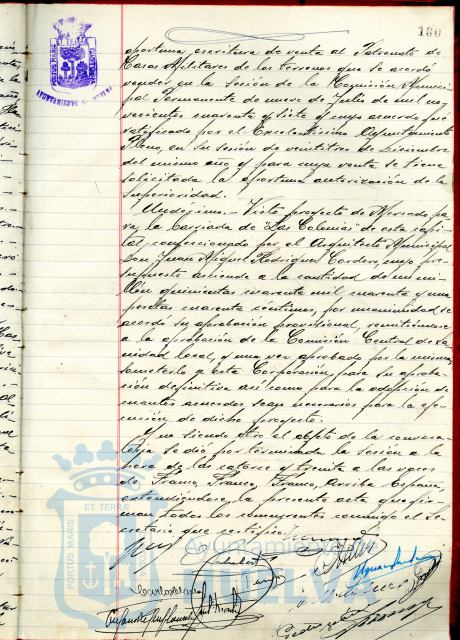 180
oportuna escritura de venta al Patronato de
Casas Militares de los terrenos que se acordó
vender en la sesión de la Comisión Munici-
pal Permanente de nueve de Julio de mil no-
vecientos cuarenta y siete y cuyo acuerdo fué
ratificado por el Excelentísimo Ayuntamiento
Pleno, en su sesión de veintitres de Diciembre
del mismo año, y para cuya venta se tiene
solicitada la oportuna autorización de la
Superioridad.
Undécimo.- Visto proyecto de Mercado pa-
ra la barriada de "Las Colonias" de esta capi-
tal, confeccionado por el Arquitecto Municipal
Don Juan Miguel Rodriguez Cordero, cuyo pre-
supuesto asciende a la cantidad de un mi-
llón quinientas cuarenta mil cuarenta y una
pesetas cuarenta céntimos, por unanimidad se
acordó su aprobación provisional, remitiendose
a la aprobación de la Comisión Central de Sa-
nidad local, y una vez aprobado por la misma,
someterlo a esta Corporación, para su aproba-
ción definitiva así como para la adopción de
cuantos acuerdos sean necesarios para la eje-
cución de dicho proyecto.
Y no siendo otro el objeto de la convoca-
toria se dió por terminada la sesión a la
hora de las catorce y treinta a las voces
de Franco, Franco, Franco, Arriba España,
extendiendose, la presente acta que fir-
man todos los concurrentes conmigo el Se-
cretario que certifico.
PORTUS MARIS
ET TERRE
CUSTODIA
AYUNTAMIENTO DE HUELVA
PORTUS MARIS
ET TERRE
Ayuntamiento de
HUELVA